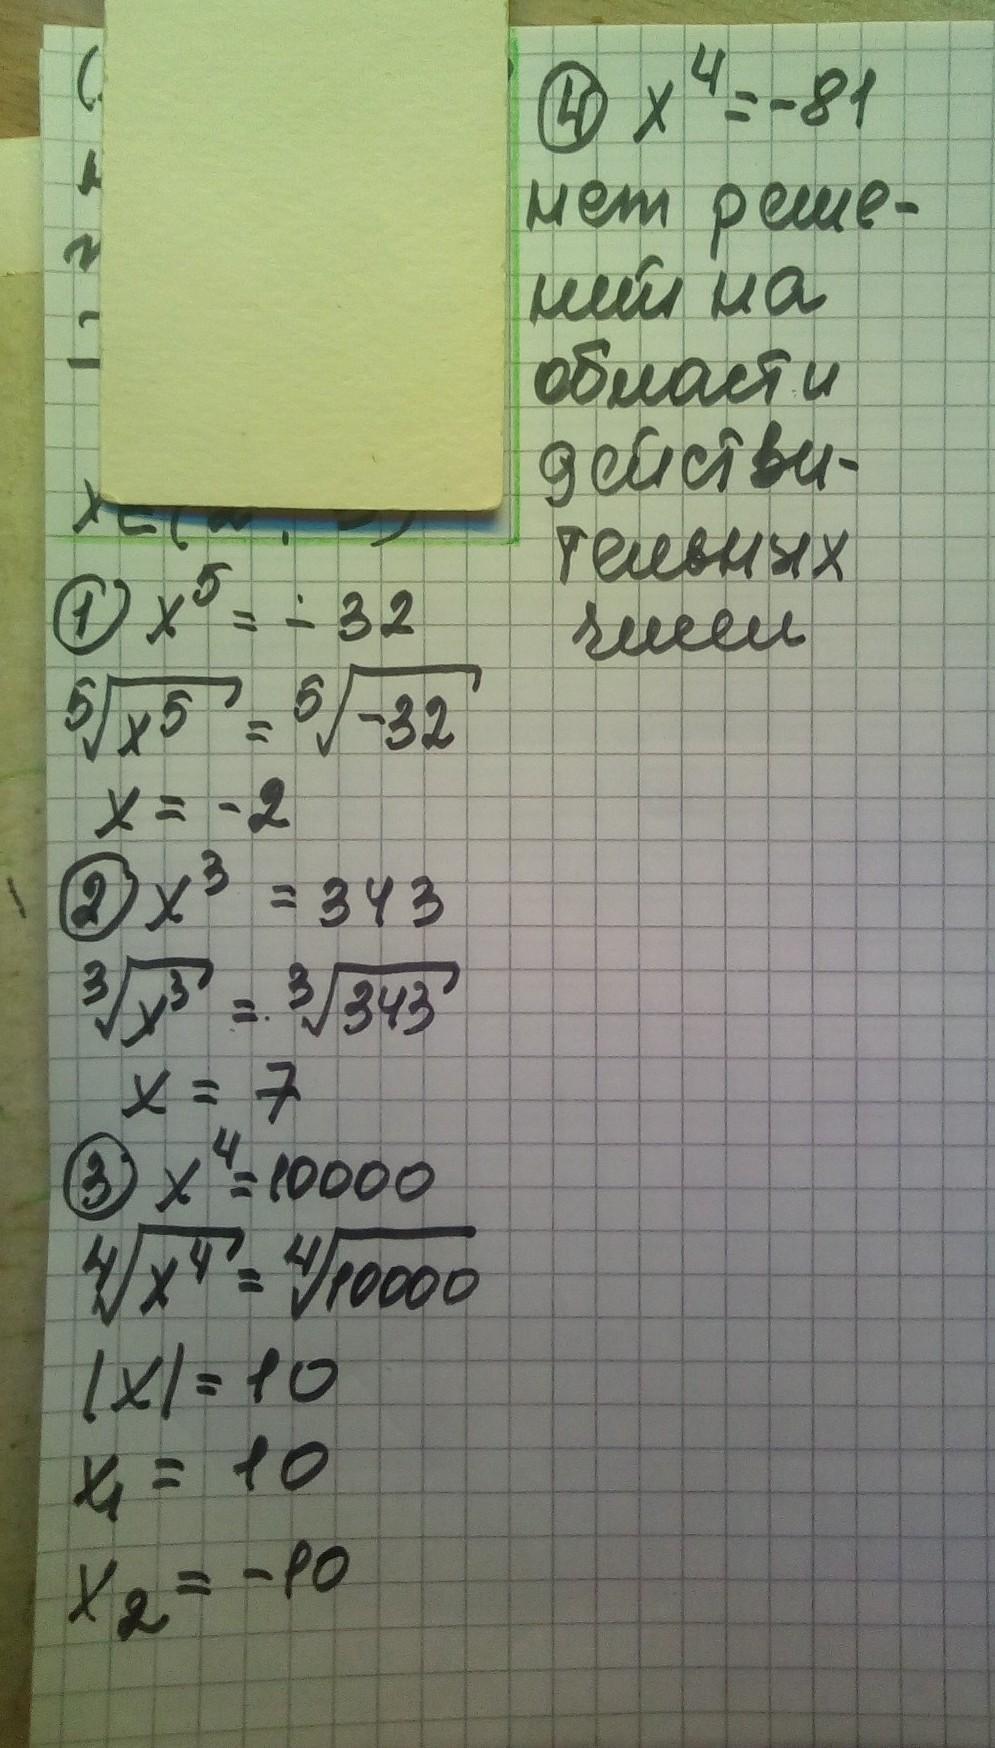 ① x⁵ = -32
⁵√x⁵ = ⁵√-32
x = -2
② x³ = 343
³√x³ = ³√343
x = 7
③ x⁴ = 10000
⁴√x⁴ = ⁴√10000
|x| = 10
x₁ = 10
x₂ = -10
④ x⁴ = -81
нет реше-
ний на
области
действи-
тельных
чисел